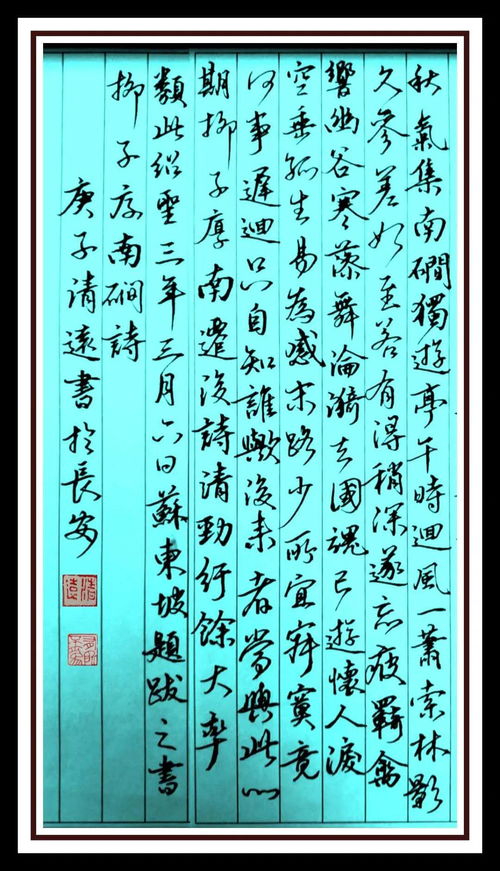 秋氣集南磵獨遊亭午時迴風一蕭索林影
久參差始至若有得稍深遂忘疲羈禽
響幽谷寒藻舞淪漪去國魂已遊懷人淚
空垂孤生易為感失路少所宜寂寞竟
何事遲迴只自知誰歟後來者當與此心
期柳子厚南遷後詩清勁紆餘大率
類此紹聖三年三月六日蘇東坡題跋之書
柳子厚南磵詩
庚子清遠書於長安
清遠